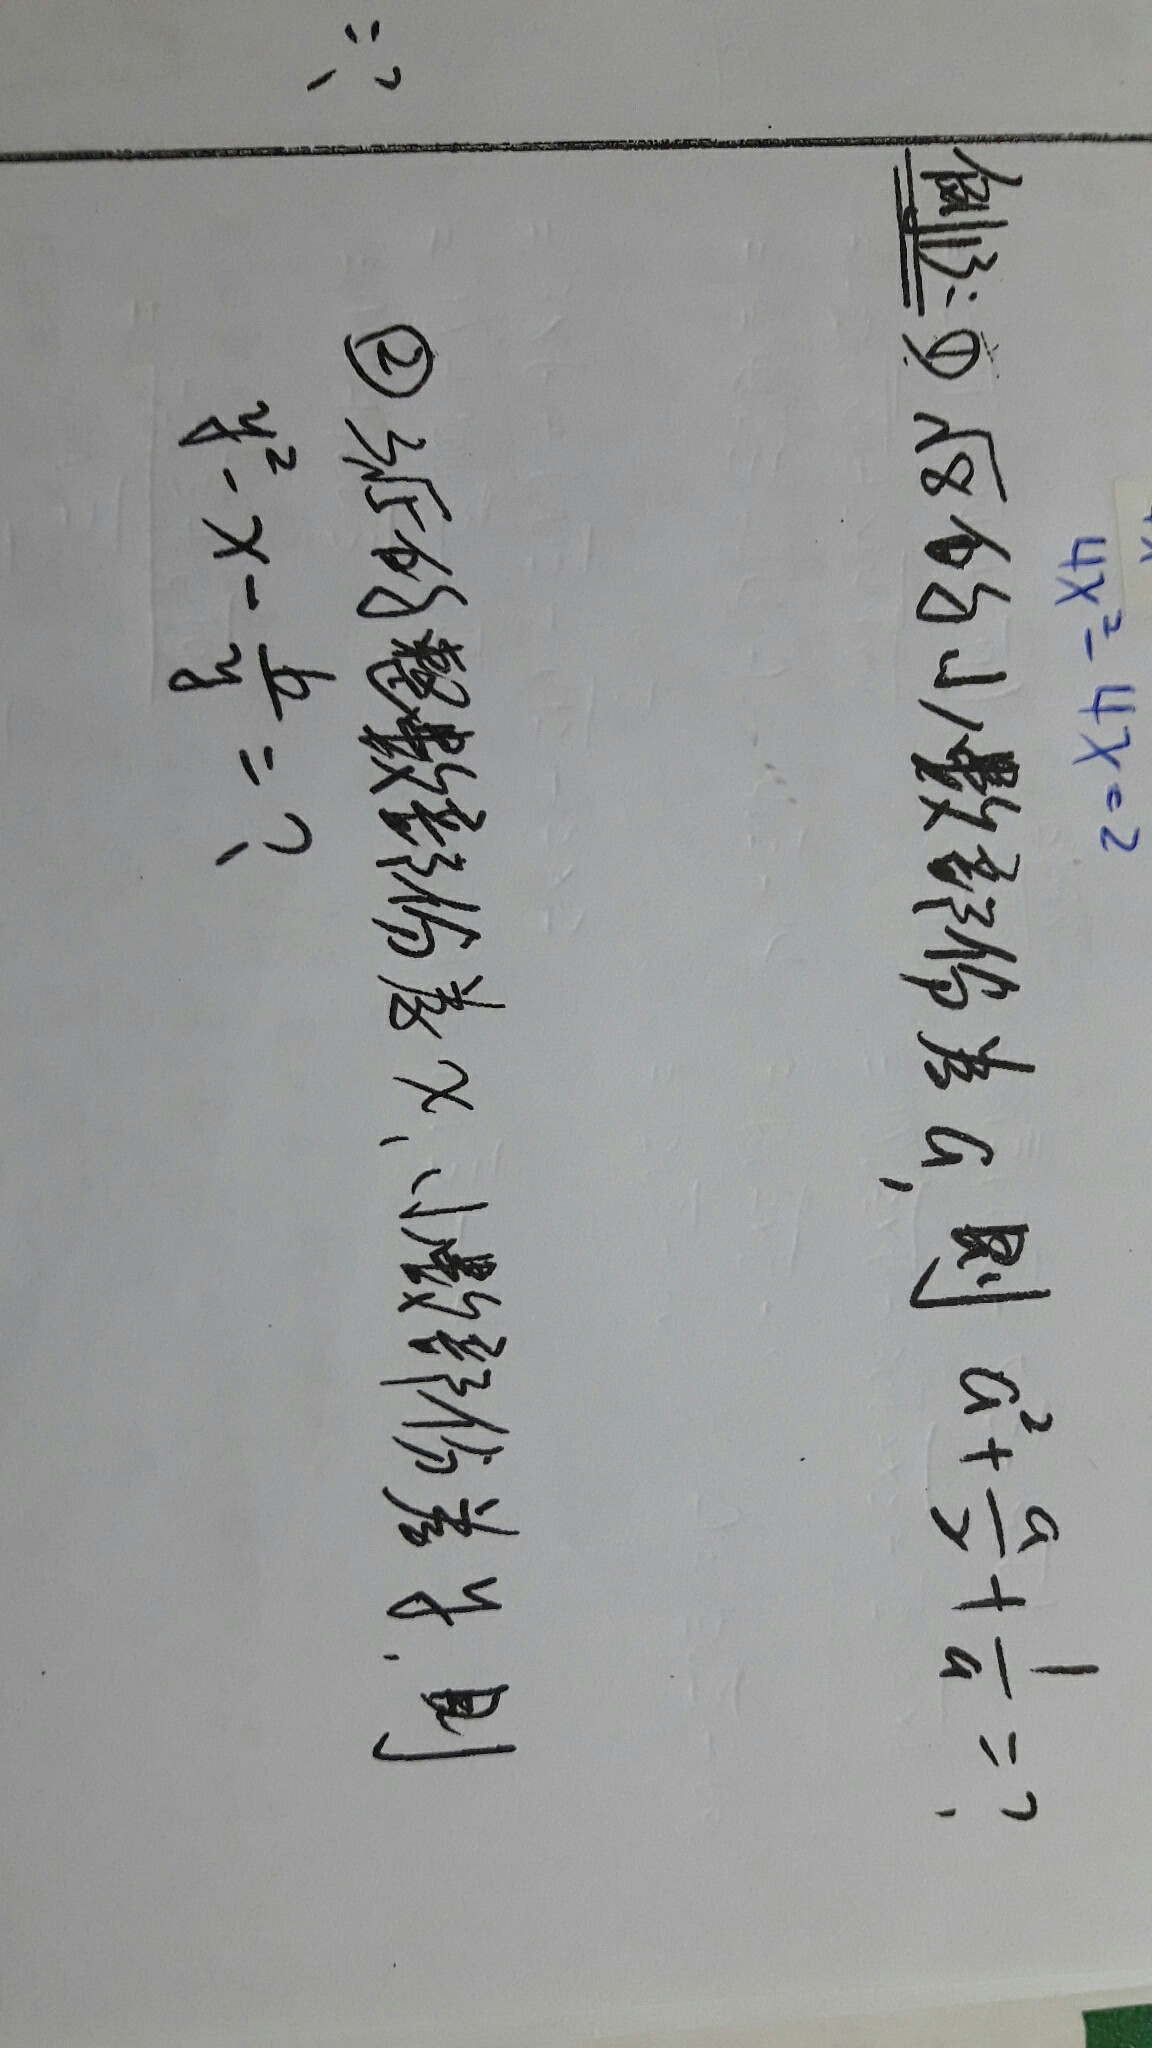 4x² - 4x = 2
例3: ① √8的小數部份為 a, 則 a² + a/2 + 1/a = ?
② 3√5的整數部份為 x, 小數部份為 y, 則
y² - x - 6/y = ?
= ?